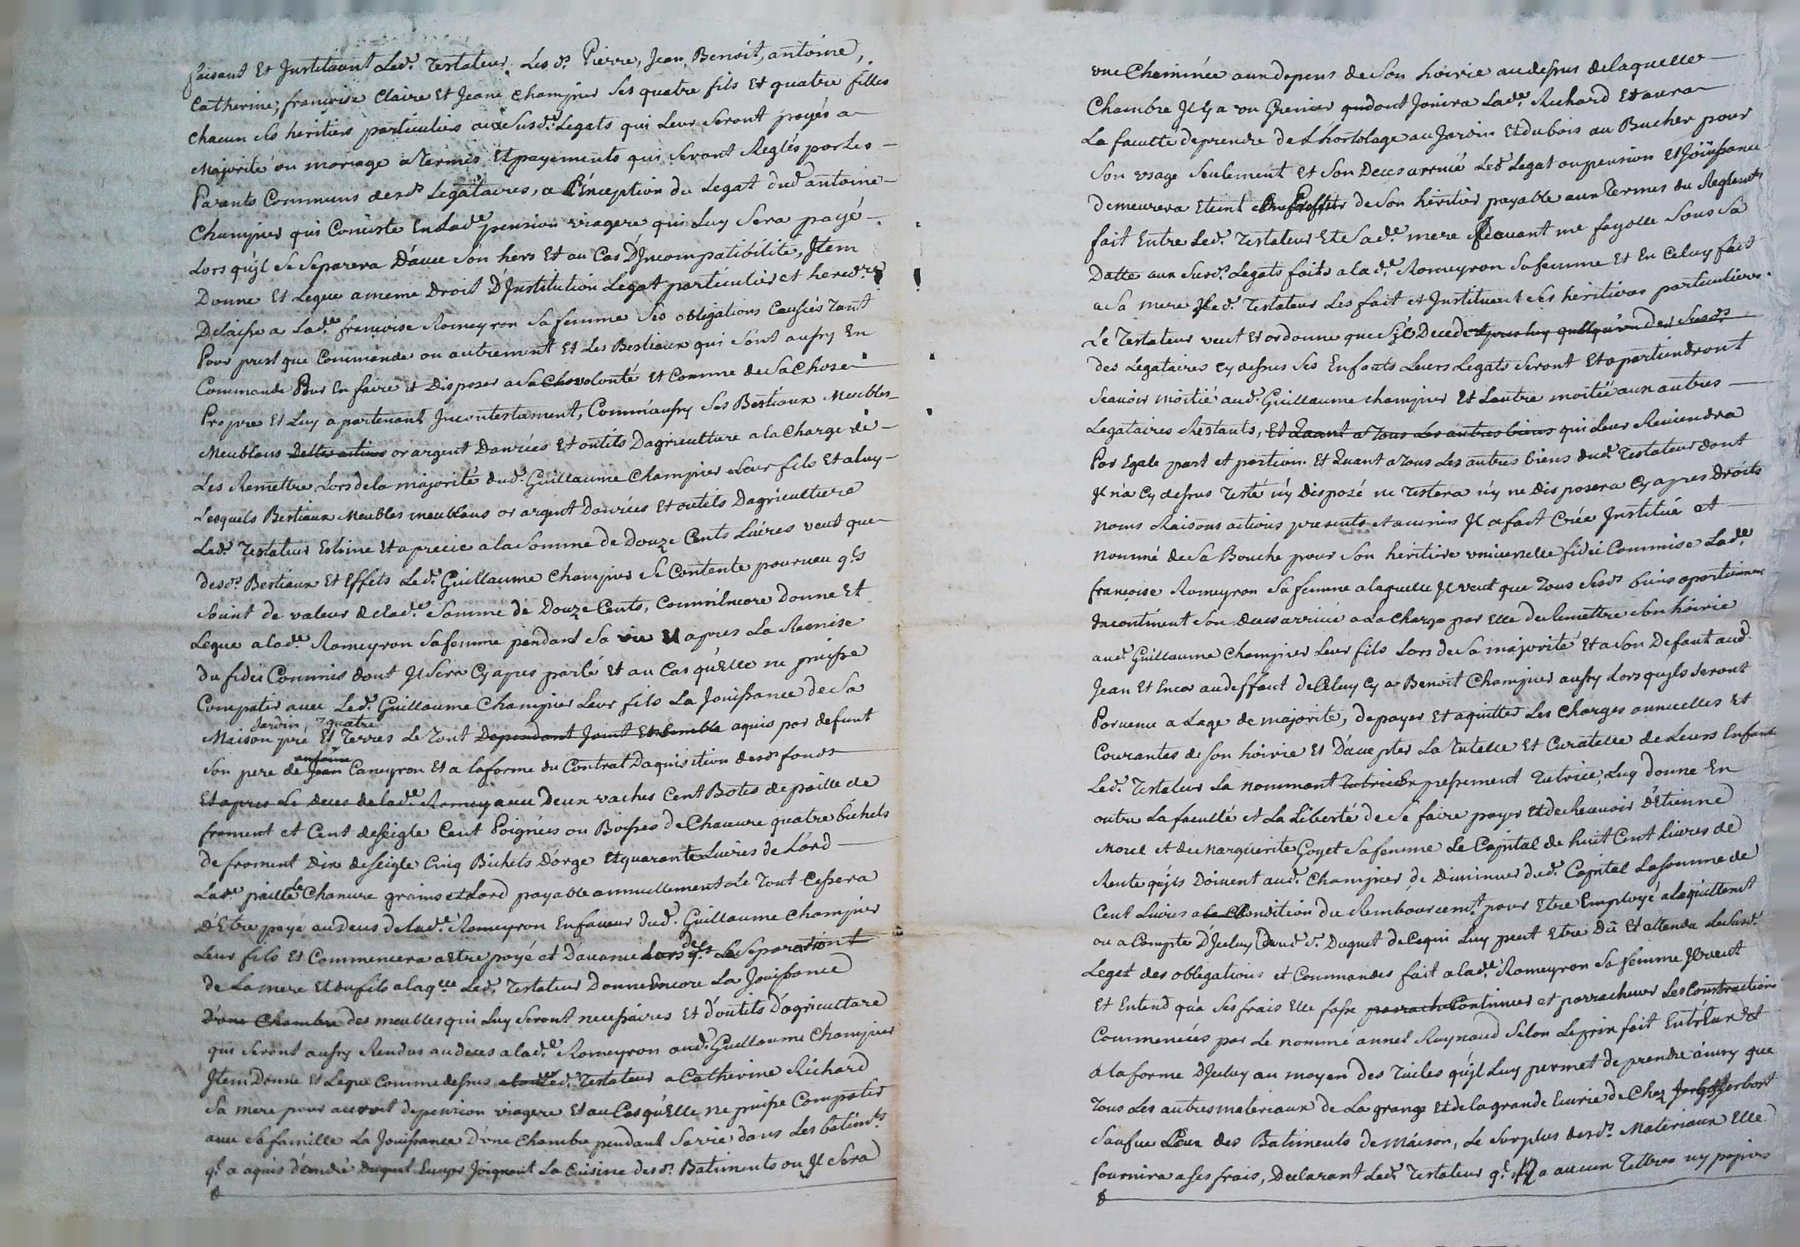 faisant Et Jnstituant Led. Testateur Les s.rs Pierre, Jean, Benoit, antoine,
Catherine, francoise Claire Et Jeane Champier Ses quatre fils Et quatre filles
Chacun Ses heritiers particuliers aux Susd. Legats qui Leur Seront payés a
Majorité ou mariage a Termes Et payements qui Seront Reglés par Les
Parants Communs desd. Legataires, a L'Exception du Legat dud antoine
Champier qui Consiste En Lad.e pension viagere qui Luy Sera payé
Lors qu'il Se Separera D'avec Son hers Et au Cas D'Jncompatibilité, Jtem
Donne Et Legue a meme Droit D'Jnstitution Legat particulier et hered.re
Delaisse a Lad.e francoise Romeyron Sa femme Ses obligations Causées Tant
Pour prest que Commande ou autrement Et Les Bestiaux qui Sont aussy En
Commande Pour En faire Et Disposer a Sa volonté Et Comme de Sa Chose
Propre Et Luy apartenant Jncontestament, Comm'aussy Ses Bestiaux Meubles
Meublans Dettes actives or argent Danrées Et outils Dagriculture a la Charge de
Les Remettre Lors de la majorité dud. Guillaume Champier Leur fils Et a luy
Lesquels Bestiaux Meubles meublans or argent Danrées Et outils Dagriculture
Led. Testateur Estime Et aprecie a la Somme de Douze Cents Livres veut que
desd. Bestiaux Et Effets Led. Guillaume Champier Se Contente pourveu q.ls
Soint de valeur de lad.e Somme de Douze Cents, Comm'encore Donne Et
Legue a lad.e Romeyron Sa femme pendant Sa vie Et apres La Remise
du fidei Commis dont Jl Sera Cy apres parlé Et au Cas qu'Elle ne puisse
Compatir avec Led. Guillaume Champier Leur fils La Jouissance de Sa
Jardin, quatre
Maison pré Et Terres Le Tout Dependant Joint Et Ensemble aquis par defunt
antoine
Son pere de Jean Caneyron Et a la forme du Contrat Daquisition desd. fonds
Et apres Le deces de lad.e Romey avec deux vaches Cent Botes de paille de
froment et Cent de Seigle Cent Poignées ou Boisses de Chanvre quatre bichets
de froment Dix de Seigle Cinq Bichets d'orge Et quarante Livres de Lard
Lad.e paille Chanvre grains et Lard payable annuellement Le Tout Cessera
D'Etre payé au Deces de lad.e Romeyron En faveur dud. Guillaume Champier
Leur fils Et Commencera a Etre payé et D'avance Lors q. La Separation
de La mere Et du fils a laq.lle Led. Testateur Donne Encore La Jouissance
D'une Chambre des meubles qui Luy Seront necessaires Et d'outils d'agriculture
qui Seront aussy Rendus au deces a lad.e Romeyron aud. Guillaume Champier
Jtem Donne et Legue Comme dessus Led. Testateur a Catherine Richard
Sa mere pour accroit de pension viagere Et au Cas qu'Elle ne puisse Compatir
avec Sa famille La Jouissance D'une Chambre pendant Sa vie dans Les batim.ts
q.l a aquis d'andré Duguet Joignant La Cuisine desd. Batiments ou Jl Sera
une Cheminée aux depens de Son hoirie au dessus de laquelle
Chambre Jl y a un Grenier dont Jouira Lad.e Richard Et aura
La faculté de prendre de L'hortolage au Jardin Et du bois au Bucher pour
Son usage Seulement Et Son Deces arrivé Led. Legat ou pension Et Jouissance
demeurera Eteint de Son héritier payable aux Termes du Reglement
fait Entre Led. Testateur Et Sad.e mere Devant me fayolle Sous Sa
Datte aux Susd. Legats faits a lad.e Romeyron Sa femme Et En Celuy fait
a Sa mere Led. Testateur Les fait et Jnstituent Ses heritieres particulieres.
Le Testateur veut Et ordonne que S'il Decede apres luy quelqu'un des Susd.
des Légataires Cy dessus Ses Enfants Leurs Legats Seront Et apartiendront
Scavoir moitié aud. Guillaume Champier Et L'autre moitié aux autres
Legataires Restants, Et Quant a Tous Les autres biens qui Leur Reviendra
Par Egale part et portion. Et Quant a Tous Les autres biens dud. Testateur dont
Jl n'a Cy dessus Testé n'y Disposé ne Testera n'y ne Disposera Cy apres Droits
noms Raisons actions presents et avenirs Jl a fait Crée Jnstitué et
nommé de Sa Bouche pour Son heritiere universelle fidei Commise Lad.e
francoise Romeyron Sa femme a laquelle Jl veut que Tous Sesd. biens apartiennent
Jncontinent Son deces arrivé a la Charge par Elle de Remettre Son hoirie
aud. Guillaume Champier Leur fils Lors de Sa majorité Et a Son Defaut aud.
Jean Et Encor au deffaut de Celuy Cy a Benoit Champier aussy Lors qu'ils Seront
Parvenu a Lage de majorité, de payer Et aquitter Les Charges annuelles Et
Courantes de Son hoirie Et D'accepter La Tutelle Et Curatelle de Leurs Enfants
Led. Testateur La nommant Tutrice Expressement Tutrice, Luy donne En
outre La faculté et La Liberté de Se faire payer Et de Recevoir d'Etienne
Morel et de Marguerite Goyet Sa femme Le Capital de huit Cent Livres de
Rente qu'ils Doivent aud. Champier de Diminuer dud. Capital La Somme de
Cent Livres a la Condition du Remboursem.t pour Etre Employé a laquittement
ou a Compte D'Jceluy dud. s. Duguet de Ce qui Luy peut Etre Dû Et attendu Le Susd.
Legat des obligations et Commandes fait a lad.e Romeyron Sa femme Jl veut
Et Entend qu'a Ses frais Elle fasse parrach Continuer et parrachever Les Constructions
Commencées par Le nommé annet Raynaud Selon Le prix fait Entr'Eux Et
a la forme D'Jceluy au moyen des Tuiles qu'il Luy permet de prendre ainsy que
Tous Les autres materiaux de La grange Et de la grande Ecurie de Chez Jerbost
Sauf des Batiments de Maison, Le Surplus desd. Materiaux Elle
fournira a Ses frais, Declarant Led. Testateur q.l n'y a aucun Tiltres ny papiers